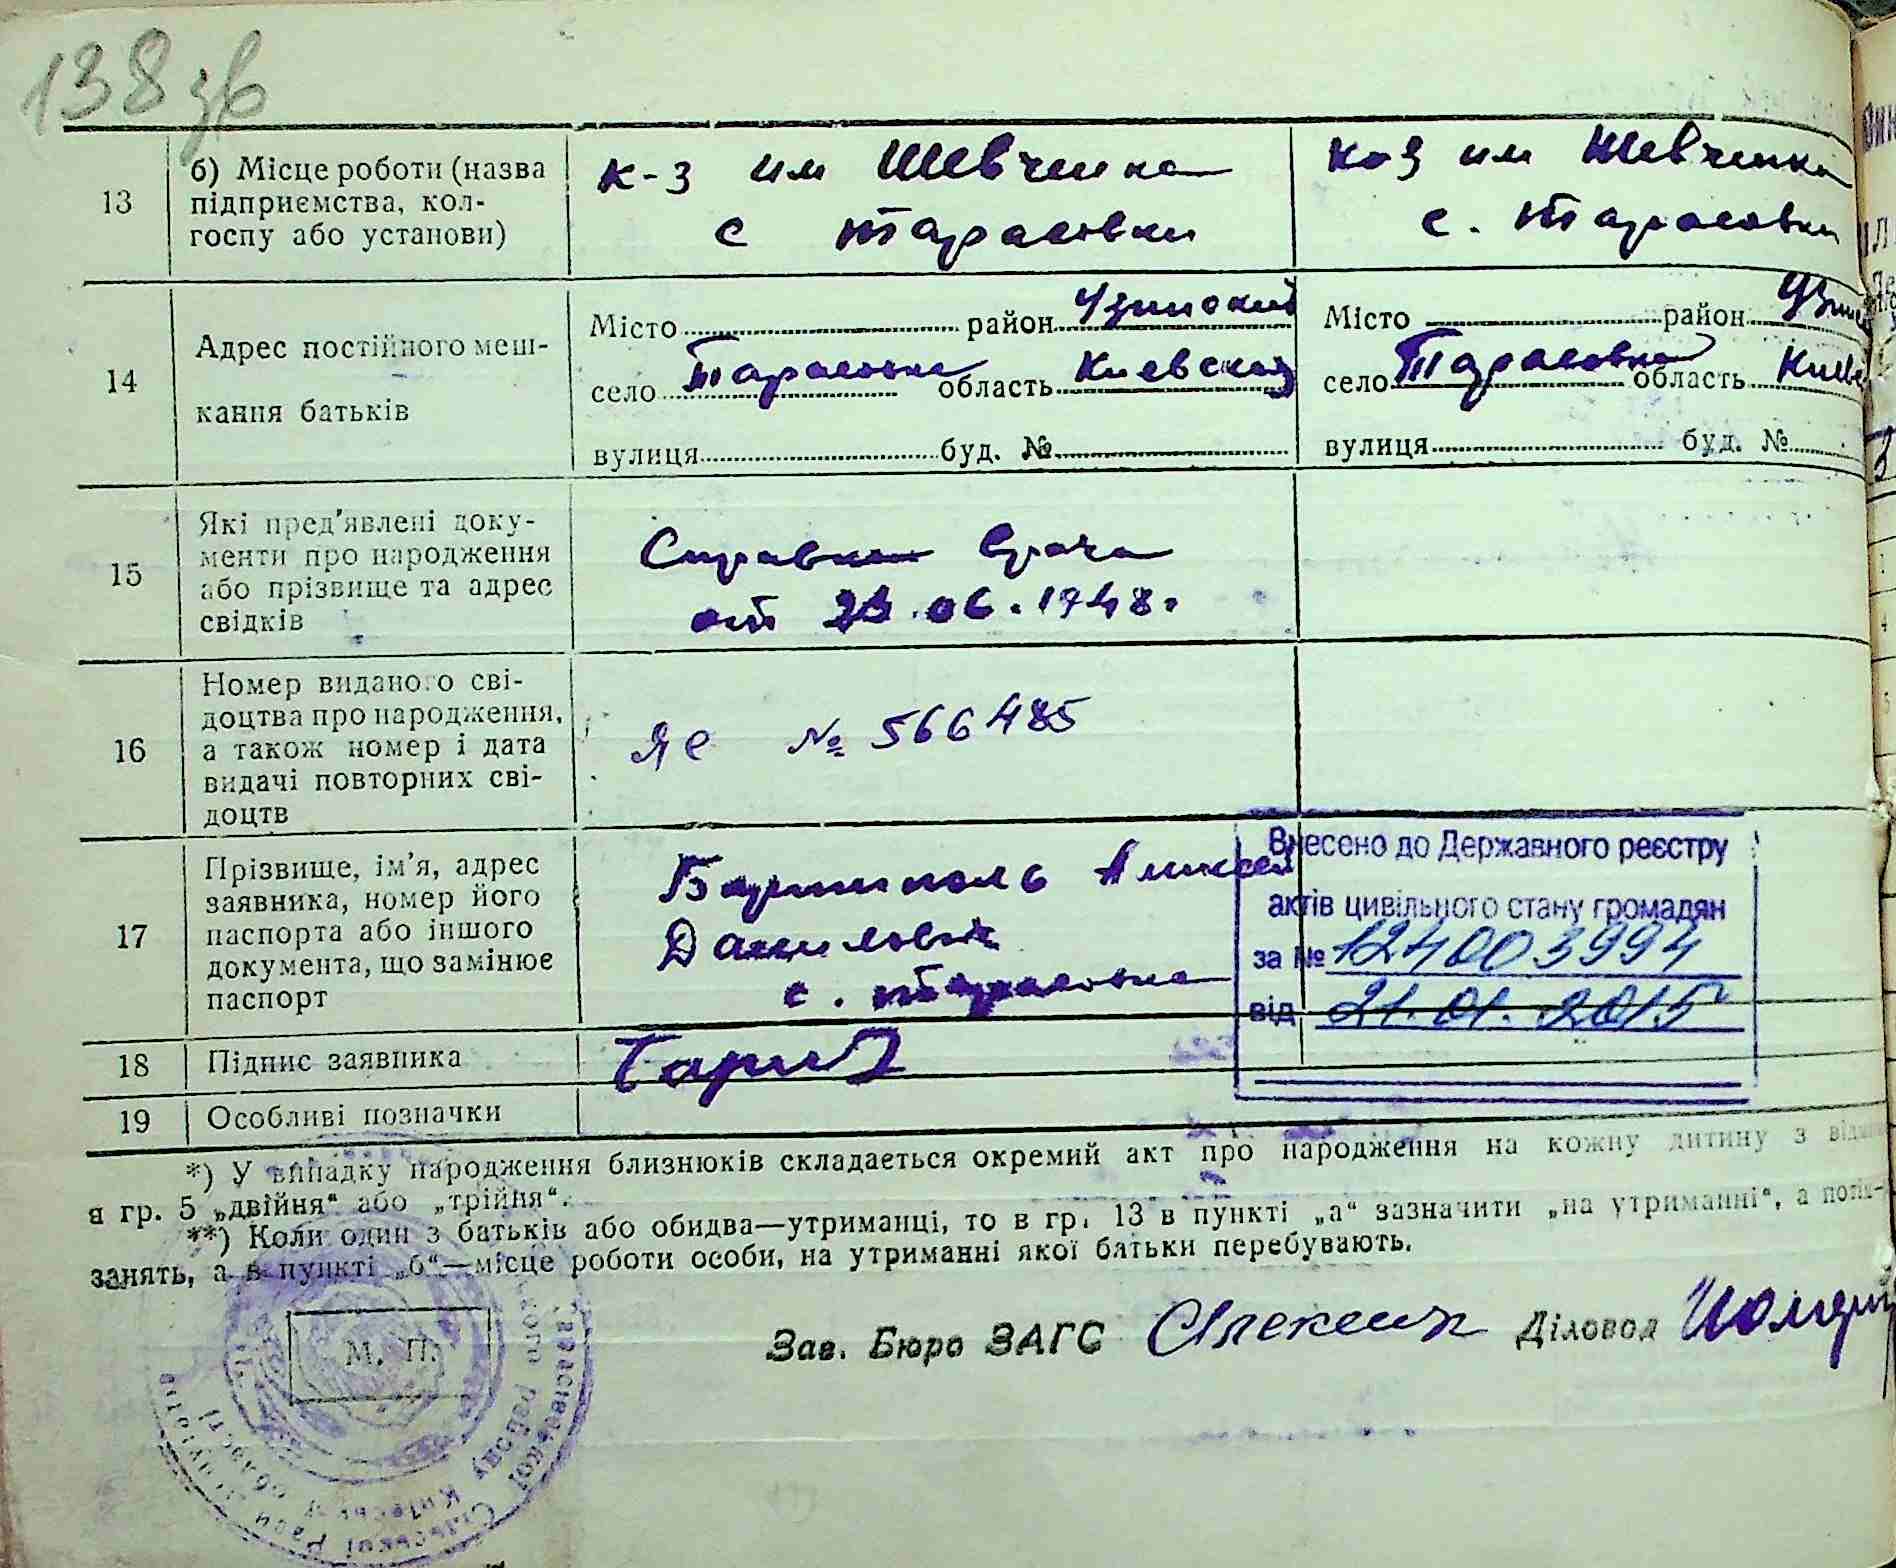 138 зв
13
б) Місце роботи (назва підприємства, колгоспу або установи)
к-з им Шевченка
с Тарасовки
к-з им Шевченка
с. Тарасовки
14
Адрес постійного меш-
кання батьків
Місто район Узинский
село Тарасовка область Киевская
вулиця буд. №
Місто район
село Тарасовка область
вулиця буд. №
15
Які пред'явлені доку-
менти про народження
або прізвище та адрес
свідків
Справка врача
от .06.1948г
16
Номер виданого сві-
доцтва про народження,
а також номер і дата
видачі повторних сві-
доцтв
ЯС № 566485
17
Прізвище, ім'я, адрес
заявника, номер його
паспорта або іншого
документа, що замінює
паспорт
Алексей
Данилович
с. Тарасовка
Внесено до Державного реєстру
актів цивільного стану громадян
за № 1240003994
від 21.01.2015
18
Підпис заявника
19
Особливі позначки
*) У випадку народження близнюків складається окремий акт про народження на кожну дитину з
в гр. 5 „двійня“ або „трійня“.
**) Коли один з батьків або обидва—утриманці, то в гр. 13 в пункті „а“ зазначити „на утриманні“, а
занять, а в пункті „б“—місце роботи особи, на утриманні якої батьки перебувають.
М. П.
Зав. Бюро ЗАГС Діловод
Сільської Ради
району Київської області